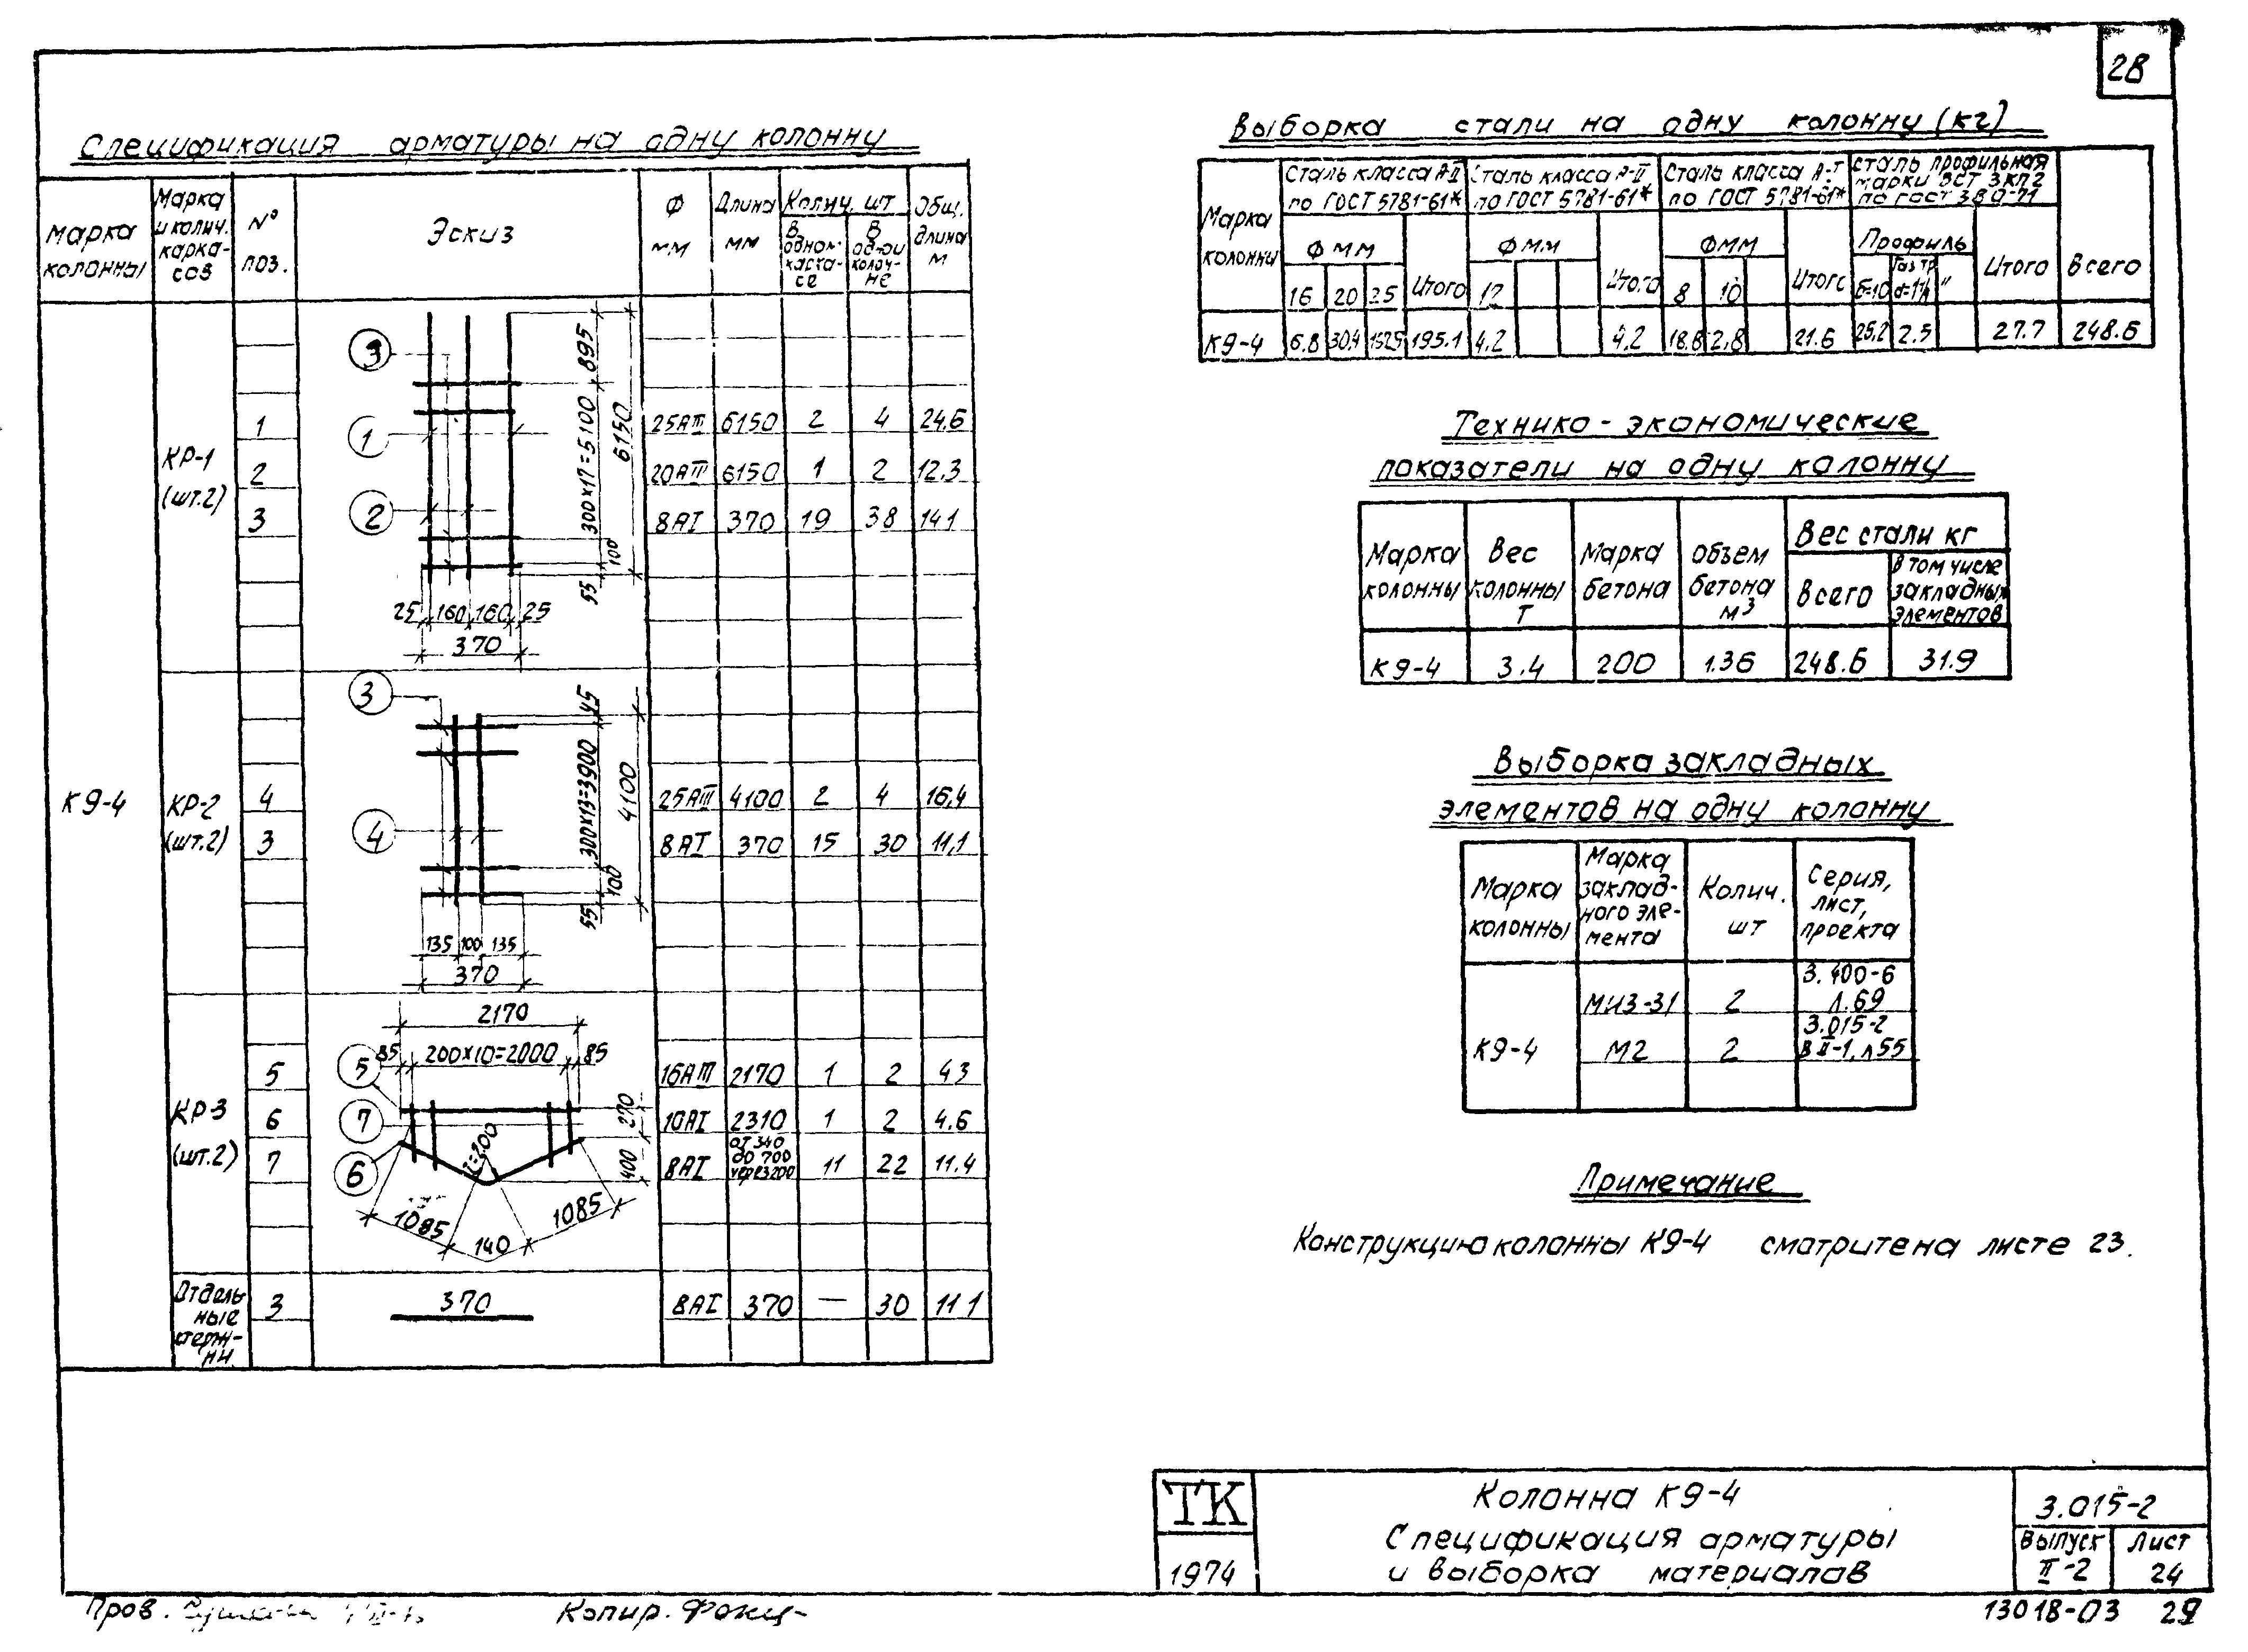 28
Спецификация арматуры на одну колонну
Марка колонны
Марка и колич. каркасов
№ поз.
Эскиз
Ф мм
Длина мм
Колич. шт
В одном каркасе
В одной колонне
Общ. длина м
К9-4
КР-1 (шт.2)
1 25АIII 6150 2 4 24,6
2 20АIII 6150 1 2 12,3
3 8АI 370 19 38 14.1
3
1
2
895
300х17=5100
6150
100
55
25 160 160 25
370
КР-2 (шт.2)
4 25АIII 4100 2 4 16,4
3 8АI 370 15 30 11,1
3
4
45
300х13=3900
4100
100
55
135 100 135
370
КР3 (шт.2)
5 16АIII 2170 1 2 4.3
6 10АI 2310 1 2 4.6
7 8АI от 340 до 700 через 200 11 22 11.4
2170
85 200х10=2000 85
5
7
6
270
400
r=200
1085
140
1085
Отдельные стержни
3 370 8АI 370 — 30 11.1
Выборка стали на одну колонну (кг)
Марка колонны
Сталь класса А-II по ГОСТ 5781-61*
Сталь класса А-II по ГОСТ 5781-61*
Сталь класса А-I по ГОСТ 5781-61*
Сталь профильная марки ВСТ 3КП2 по ГОСТ 380-71
Всего
Ф мм
Итого
Ф мм
Итого
Ф мм
Итого
Профиль
Итого
16 20 25
12
8 10
δ=10 Газ.тр
К9-4 6.8 30,4 195.1 4,2 4,2 18.8 2,8 21.6 25,2 2.5 27.7 248.6
Технико-экономические
показатели на одну колонну
Марка колонны
Вес колонны Т
Марка бетона
объем бетона м³
Вес стали кг
Всего
В том числе закладных элементов
К9-4 3.4 200 1.36 248.6 31.9
Выборка закладных
элементов на одну колонну
Марка колонны
Марка закладного элемента
Колич. шт
Серия, лист, проекта
К9-4
МИ3-31 2 3.400-6 л.69
М2 2 3.015-2 В II-1, л 55
Примечание
Конструкцию колонны К9-4 смотрите на листе 23.
ТК
1974
Колонна К9-4
Спецификация арматуры
и выборка материалов
3.015-2
Выпуск II-2
Лист 24
Пров.
Копир.
13018-03 29